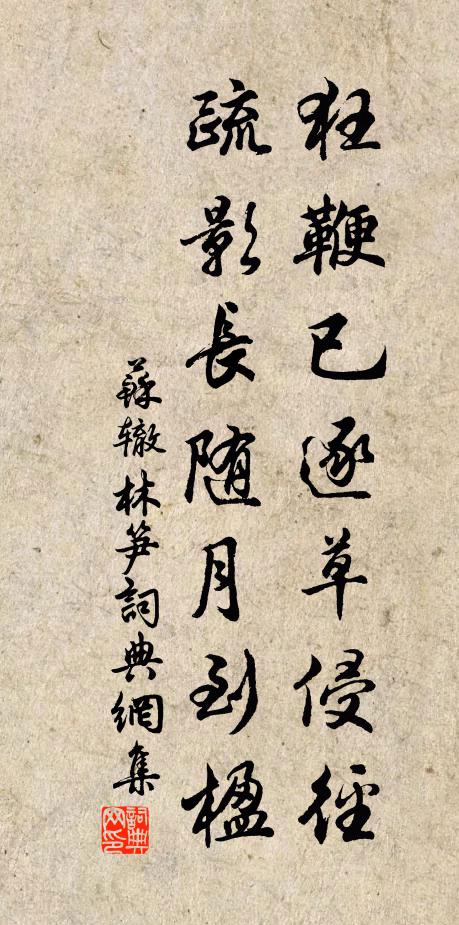 狂鞭已逐草侵徑
疏影長随月到楹
蘇辙林笋詞典網集
詞典网印